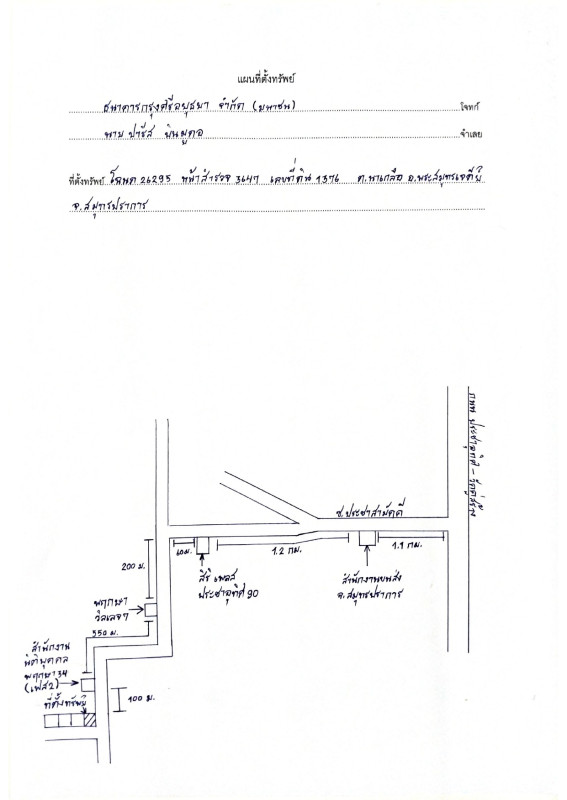 แผนที่ตั้งทรัพย์
ธนาคารกรุงศรีอยุธยา จำกัด (มหาชน) โจทก์
นายปารีส จำเลย
ที่ตั้งทรัพย์ โฉนด 26295 หน้าสำรวจ 3647 เลขที่ดิน 1376 ต.นาเกลือ อ.พระสมุทรเจดีย์
จ.สมุทรปราการ
ถนน ประชาอุทิศ -
ซ.ประชาสามัคคี
60ม.
1.2 กม.
1.1 กม.
200 ม.
สิริ เพลส
ประชาอุทิศ 90
สำนักงานขนส่ง
จ.สมุทรปราการ
พฤกษา
วิลเลจ7
550 ม.
สำนักงาน
นิติบุคคล
พฤกษา 34
(เฟส2)
ที่ตั้งทรัพย์
100 ม.